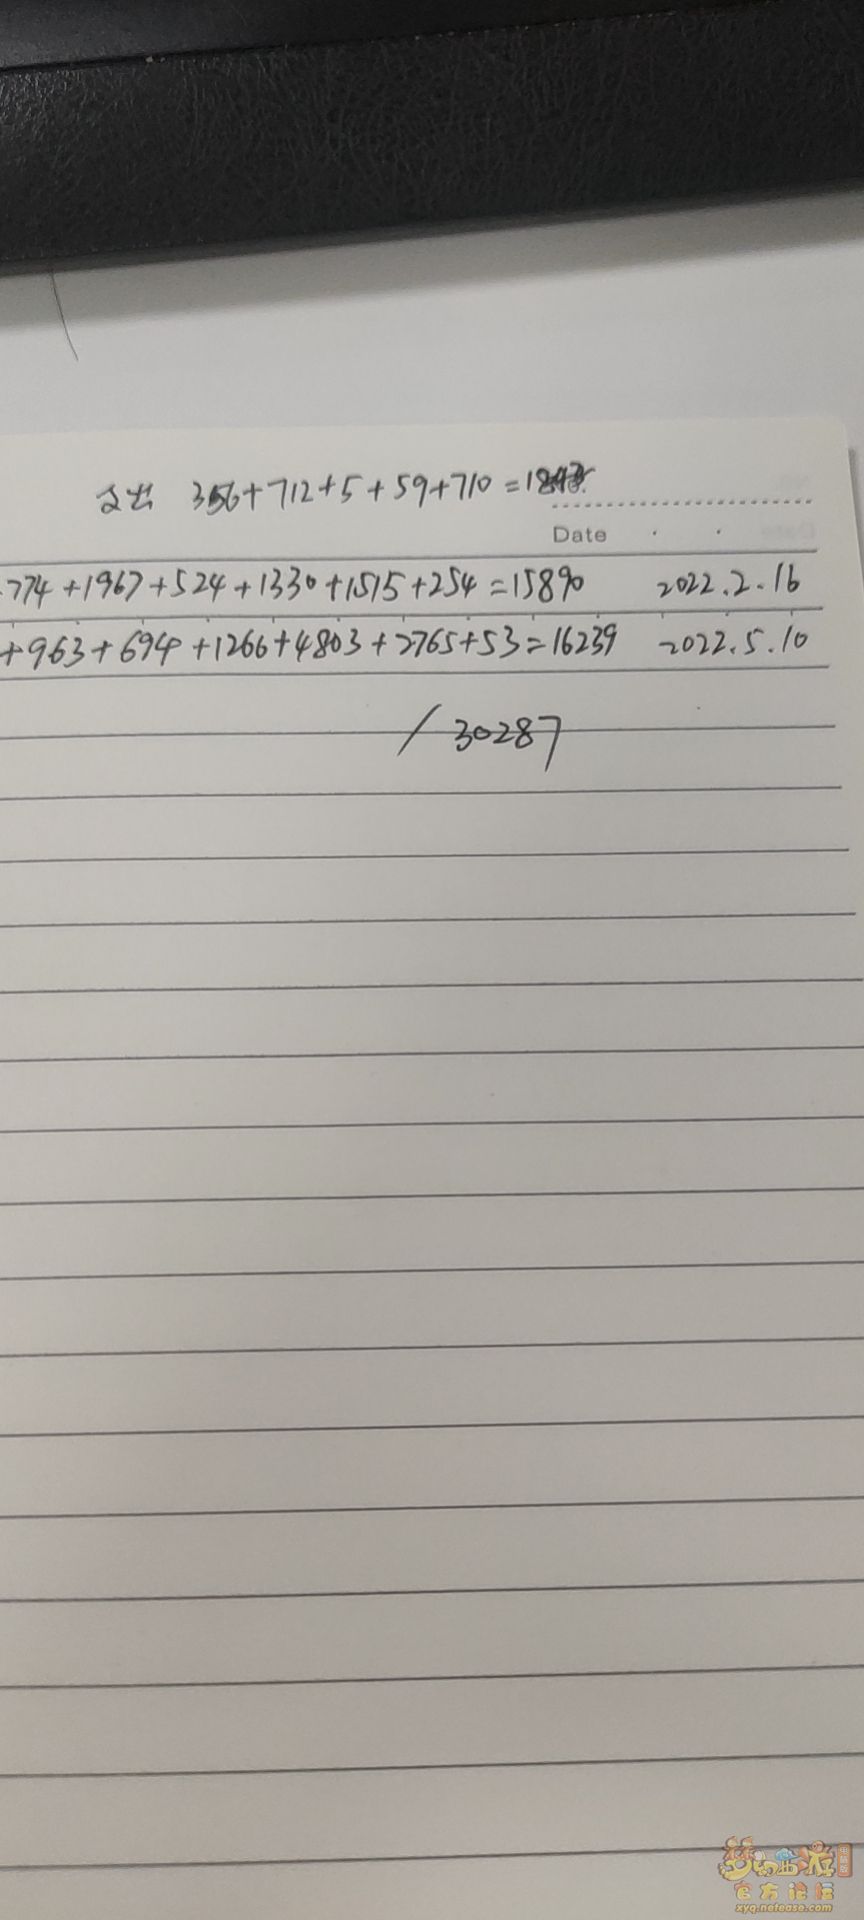 支出 356+712+5+59+710=184
Date
774+1967+524+1330+1515+254=15890 2022.2.16
+963+694+1266+4803+2765+53=16239 2022.5.10
/30287
梦幻西游 电脑版
官方论坛
xyq.netease.com